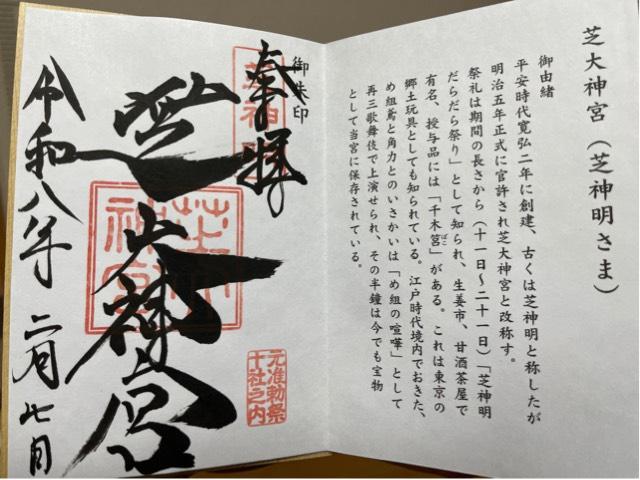 芝大神宮（芝神明さま）
御由緒
平安時代寛弘二年に創建、古くは芝神明と称したが
明治五年正式に官許され芝大神宮と改称す。
祭礼は期間の長さから（十一日～二十一日）「芝神明
だらだら祭り」として知られ、生姜市、甘酒茶屋で
有名、授与品には「千木筥」がある。これは東京の
ばこ
郷土玩具としても知られている。江戸時代境内でおきた、
め組鳶と角力とのいさかいは「め組の喧嘩」として
再三歌舞伎で上演せられ、その半鐘は今でも宝物
として当宮に保存されている。
御朱印
奉拝
芝神明
芝大神宮
芝大神宮
元准勅祭
十社之内
令和八年 二月七日